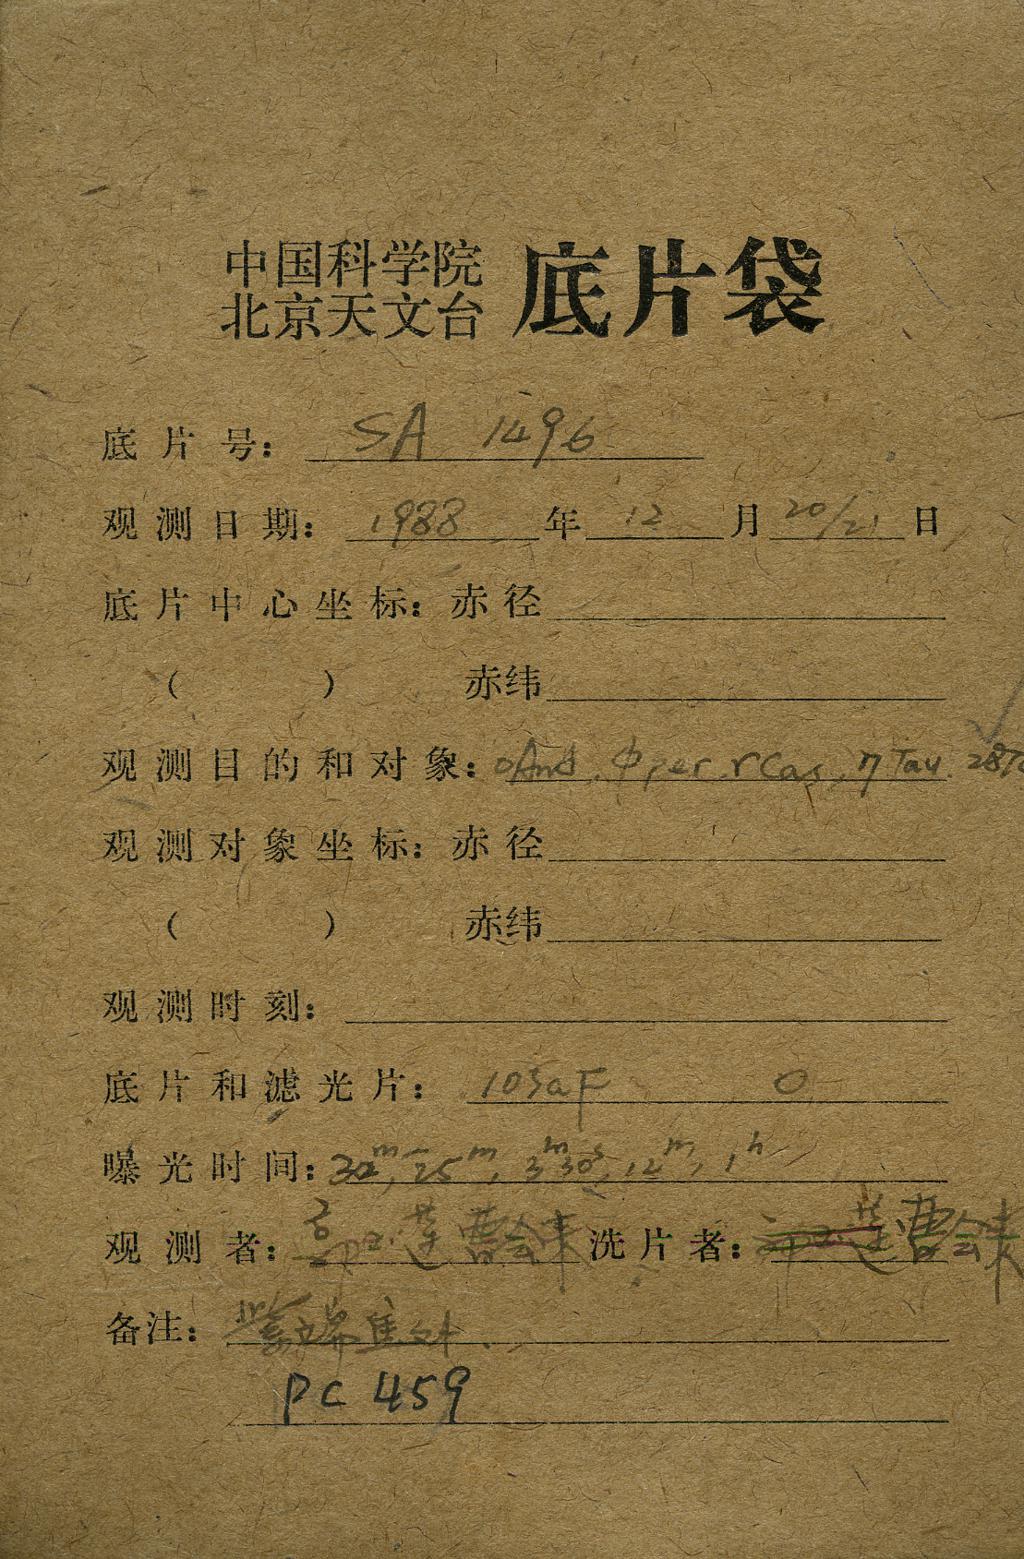 中国科学院
北京天文台 底片袋
底片号: SA 1496
观测日期: 1988 年 12 月 20/21 日
底片中心坐标: 赤径
( ) 赤纬
观测目的和对象: oAnd, φper, rCas, ηTau. 28Ta
观测对象坐标: 赤径
( ) 赤纬
观测时刻:
底片和滤光片: 103aF O
曝光时间: 30m, 25m, 3m30s, 12m, 1h
观测者: 郭玉莲 曹会来 洗片者: 郭玉莲 曹会来
备注: 紫端焦外.
PC 459